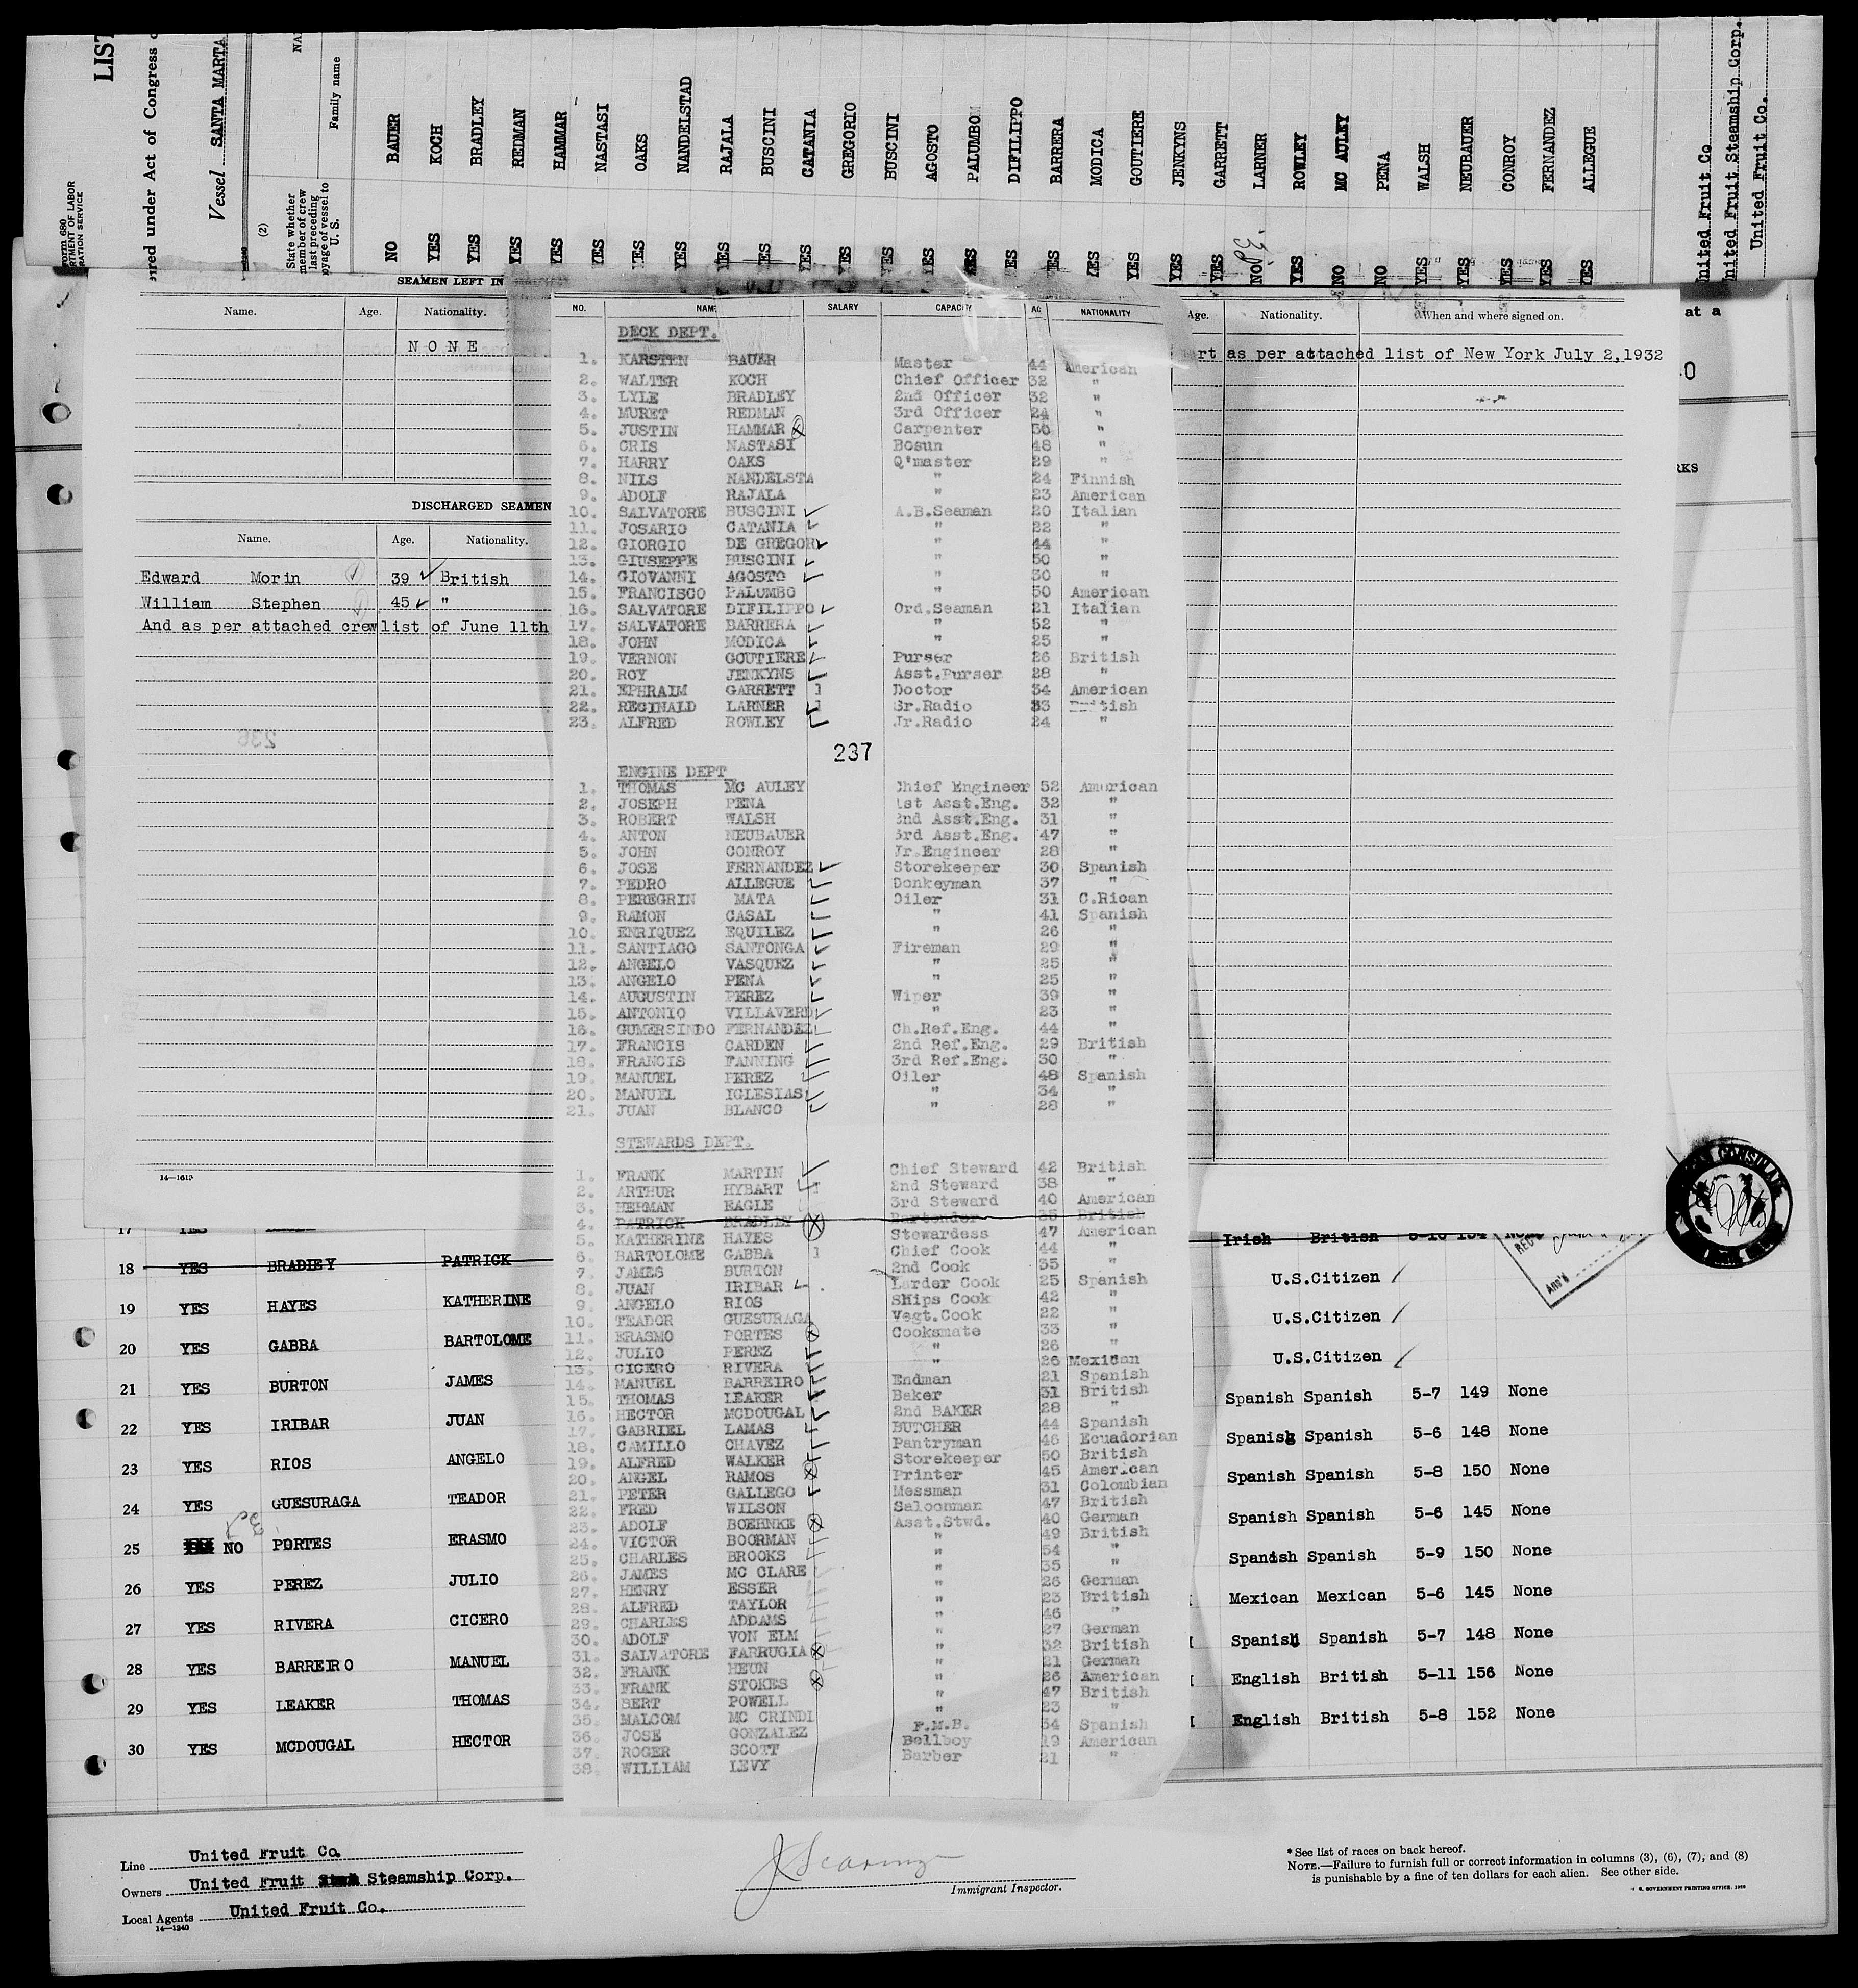 LIST
Form 680
RTMENT OF LABOR
RATION SERVICE
ired under Act of Congress
Vessel SANTA MARTA
(2)
State whether
member of crew
last preceding
voyage of vessel to
U. S.
Family name
NO BAUER
YES KOCH
YES BRADLEY
YES REDMAN
YES HAMMAR
YES NASTASI
YES OAKS
YES NANDELSTAD
YES RAJALA
YES BUSCINI
YES CATANIA
YES GREGORIO
YES BUSCINI
YES AGOSTO
YES PALUMBO
YES DIFILIPPO
YES BARRERA
YES MODICA
YES GOUTIERE
YES JENKYNS
YES GARRETT
NO LARNER
YES ROWLEY
NO MC AULEY
NO PENA
YES WALSH
YES NEUBAUER
YES CONROY
YES FERNANDEZ
YES ALLEGUE
United Fruit Co.
United Fruit Steamship Corp.
United Fruit Co.
SEAMEN LEFT IN
Name. Age. Nationality.
NONE
Age. Nationality. When and where signed on.
art as per attached list of New York July 2,1932
at a
RKS
DISCHARGED SEAMEN
Name. Age. Nationality.
Edward Morin 39 British
William Stephen 45 "
And as per attached crew list of June 11th
236
14—1613
NO. NAME SALARY CAPACITY AG NATIONALITY
DECK DEPT.
1. KARSTEN BAUER Master 44 American
2. WALTER KOCH Chief Officer 32 "
3. LYLE BRADLEY 2nd Officer 32 "
4. MURET REDMAN 3rd Officer 24 "
5. JUSTIN HAMMAR Carpenter 36 "
6. CRIS NASTASI Bosun 48 "
7. HARRY OAKS Q'master 29 "
8. NILS NANDELSTA " 24 Finnish
9. ADOLF RAJALA " 23 American
10. SALVATORE BUSCINI A.B.Seaman 20 Italian
11. JOSARIO CATANIA " 22 "
12. GIORGIO DE GREGOR " 44 "
13. GIUSEPPE BUSCINI " 50 "
14. GIOVANNI AGOSTO " 30 "
15. FRANCISCO PALUMBO " 50 American
16. SALVATORE DIFILIPPO Ord.Seaman 21 Italian
17. SALVATORE BARRERA " 52 "
18. JOHN MODICA " 25 "
19. VERNON GOUTIERE Purser 26 British
20. ROY JENKYNS Asst.Purser 28 "
21. EPHRAIM GARRETT Doctor 34 American
22. REGINALD LARNER Sr.Radio 33 British
23. ALFRED ROWLEY Jr.Radio 24 "
237
ENGINE DEPT
1. THOMAS MC AULEY Chief Engineer 52 American
2. JOSEPH PENA 1st Asst.Eng. 32 "
3. ROBERT WALSH 2nd Asst.Eng. 31 "
4. ANTON NEUBAUER 3rd Asst.Eng. 47 "
5. JOHN CONROY Jr.Engineer 28 "
6. JOSE FERNANDEZ Storekeeper 30 Spanish
7. PEDRO ALLEGUE Donkeyman 37 "
8. PEREGRIN MATA Oiler 31 C.Rican
9. RAMON CASAL " 41 Spanish
10. ENRIQUEZ EQUILEZ " 26 "
11. SANTIAGO SANTONGA Fireman 29 "
12. ANGELO VASQUEZ " 25 "
13. ANGELO PENA " 25 "
14. AUGUSTIN PEREZ Wiper 39 "
15. ANTONIO VILLAVERD " 23 "
16. GUMERSINDO FERNANDEZ Ch.Ref.Eng. 44 "
17. FRANCIS CARDEN 2nd Ref.Eng. 29 British
18. FRANCIS FANNING 3rd Ref.Eng. 30 "
19. MANUEL PEREZ Oiler 48 Spanish
20. MANUEL IGLESIAS " 34 "
21. JUAN BLANCO " 28 "
STEWARDS DEPT.
1. FRANK MARTIN Chief Steward 42 British
2. ARTHUR HYBART 2nd Steward 38 "
3. HERMAN EAGLE 3rd Steward 40 American
4. PATRICK BRADLEY Bartender 35 British
5. KATHERINE HAYES Stewardess 47 American
6. BARTOLOME GABBA Chief Cook 44 "
7. JAMES BURTON 2nd Cook 35 "
8. JUAN IRIBAR Larder Cook 25 Spanish
9. ANGELO RIOS Ships Cook 42 "
10. TEADOR GUESURAGA Vegt.Cook 22 "
11. ERASMO PORTES Cooksmate 33 "
12. JULIO PEREZ " 26 "
13. CICERO RIVERA " 26 Mexican
14. MANUEL BARREIRO Endman 21 Spanish
15. THOMAS LEAKER Baker 31 British
16. HECTOR MCDOUGAL 2nd BAKER 28 "
17. GABRIEL LAMAS BUTCHER 44 Spanish
18. CAMILLO CHAVEZ Pantryman 46 Ecuadorian
19. ALFRED WALKER Storekeeper 50 British
20. ANGEL RAMOS Printer 45 American
21. PETER GALLEGO Messman 31 Colombian
22. FRED WILSON Saloonman 47 British
23. ADOLF BOEHNKE Asst.Stwd. 40 German
24. VICTOR BOORMAN " 49 British
25. CHARLES BROOKS " 54 "
26. JAMES MC CLARE " 35 "
27. HENRY ESSER " 26 German
28. ALFRED TAYLOR " 23 British
29. CHARLES ADDAMS " 46 "
30. ADOLF VON ELM " 27 German
31. SALVATORE FARRUGIA " 32 British
32. FRANK HEUN " 21 German
33. FRANK STOKES " 26 American
34. BERT POWELL " 47 British
35. MALCOM MC CRINDI " 23 "
36. JOSE GONZALEZ F.M.B. 34 Spanish
37. ROGER SCOTT Bellboy 19 American
38. WILLIAM LEVY Barber 21 "
17 YES
18 YES BRADLEY PATRICK Irish British 5-10 154
19 YES HAYES KATHERINE U.S.Citizen
20 YES GABBA BARTOLOME U.S.Citizen
21 YES BURTON JAMES U.S.Citizen
22 YES IRIBAR JUAN Spanish Spanish 5-7 149 None
23 YES RIOS ANGELO Spanish Spanish 5-6 148 None
24 YES GUESURAGA TEADOR Spanish Spanish 5-8 150 None
25 NO PORTES ERASMO Spanish Spanish 5-6 145 None
26 YES PEREZ JULIO Spanish Spanish 5-9 150 None
27 YES RIVERA CICERO Mexican Mexican 5-6 145 None
28 YES BARREIRO MANUEL Spanish Spanish 5-7 148 None
29 YES LEAKER THOMAS English British 5-11 156 None
30 YES MCDOUGAL HECTOR English British 5-8 152 None
Line United Fruit Co.
Owners United Fruit Steamship Corp.
Local Agents United Fruit Co.
14—1240
Immigrant Inspector.
* See list of races on back hereof.
NOTE.—Failure to furnish full or correct information in columns (3), (6), (7), and (8)
is punishable by a fine of ten dollars for each alien. See other side.
GOVERNMENT PRINTING OFFICE